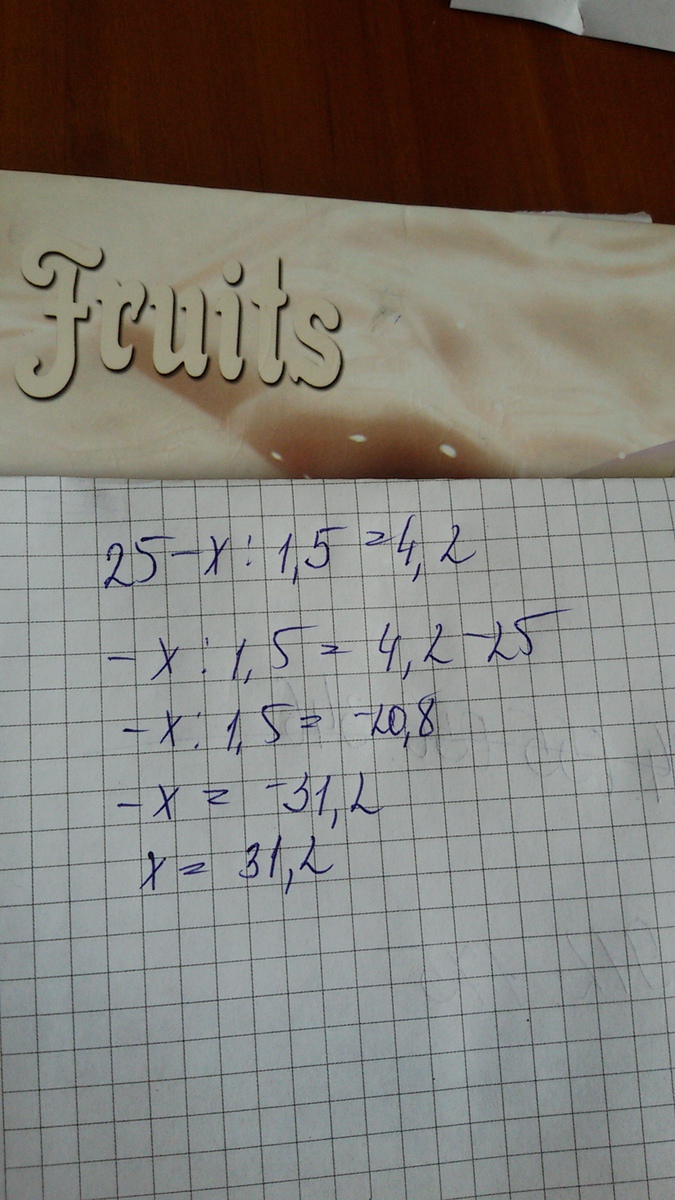 Fruits
25-x:1,5=4,2
-x:1,5=4,2-25
-x:1,5=-20,8
-x=-31,2
x=31,2